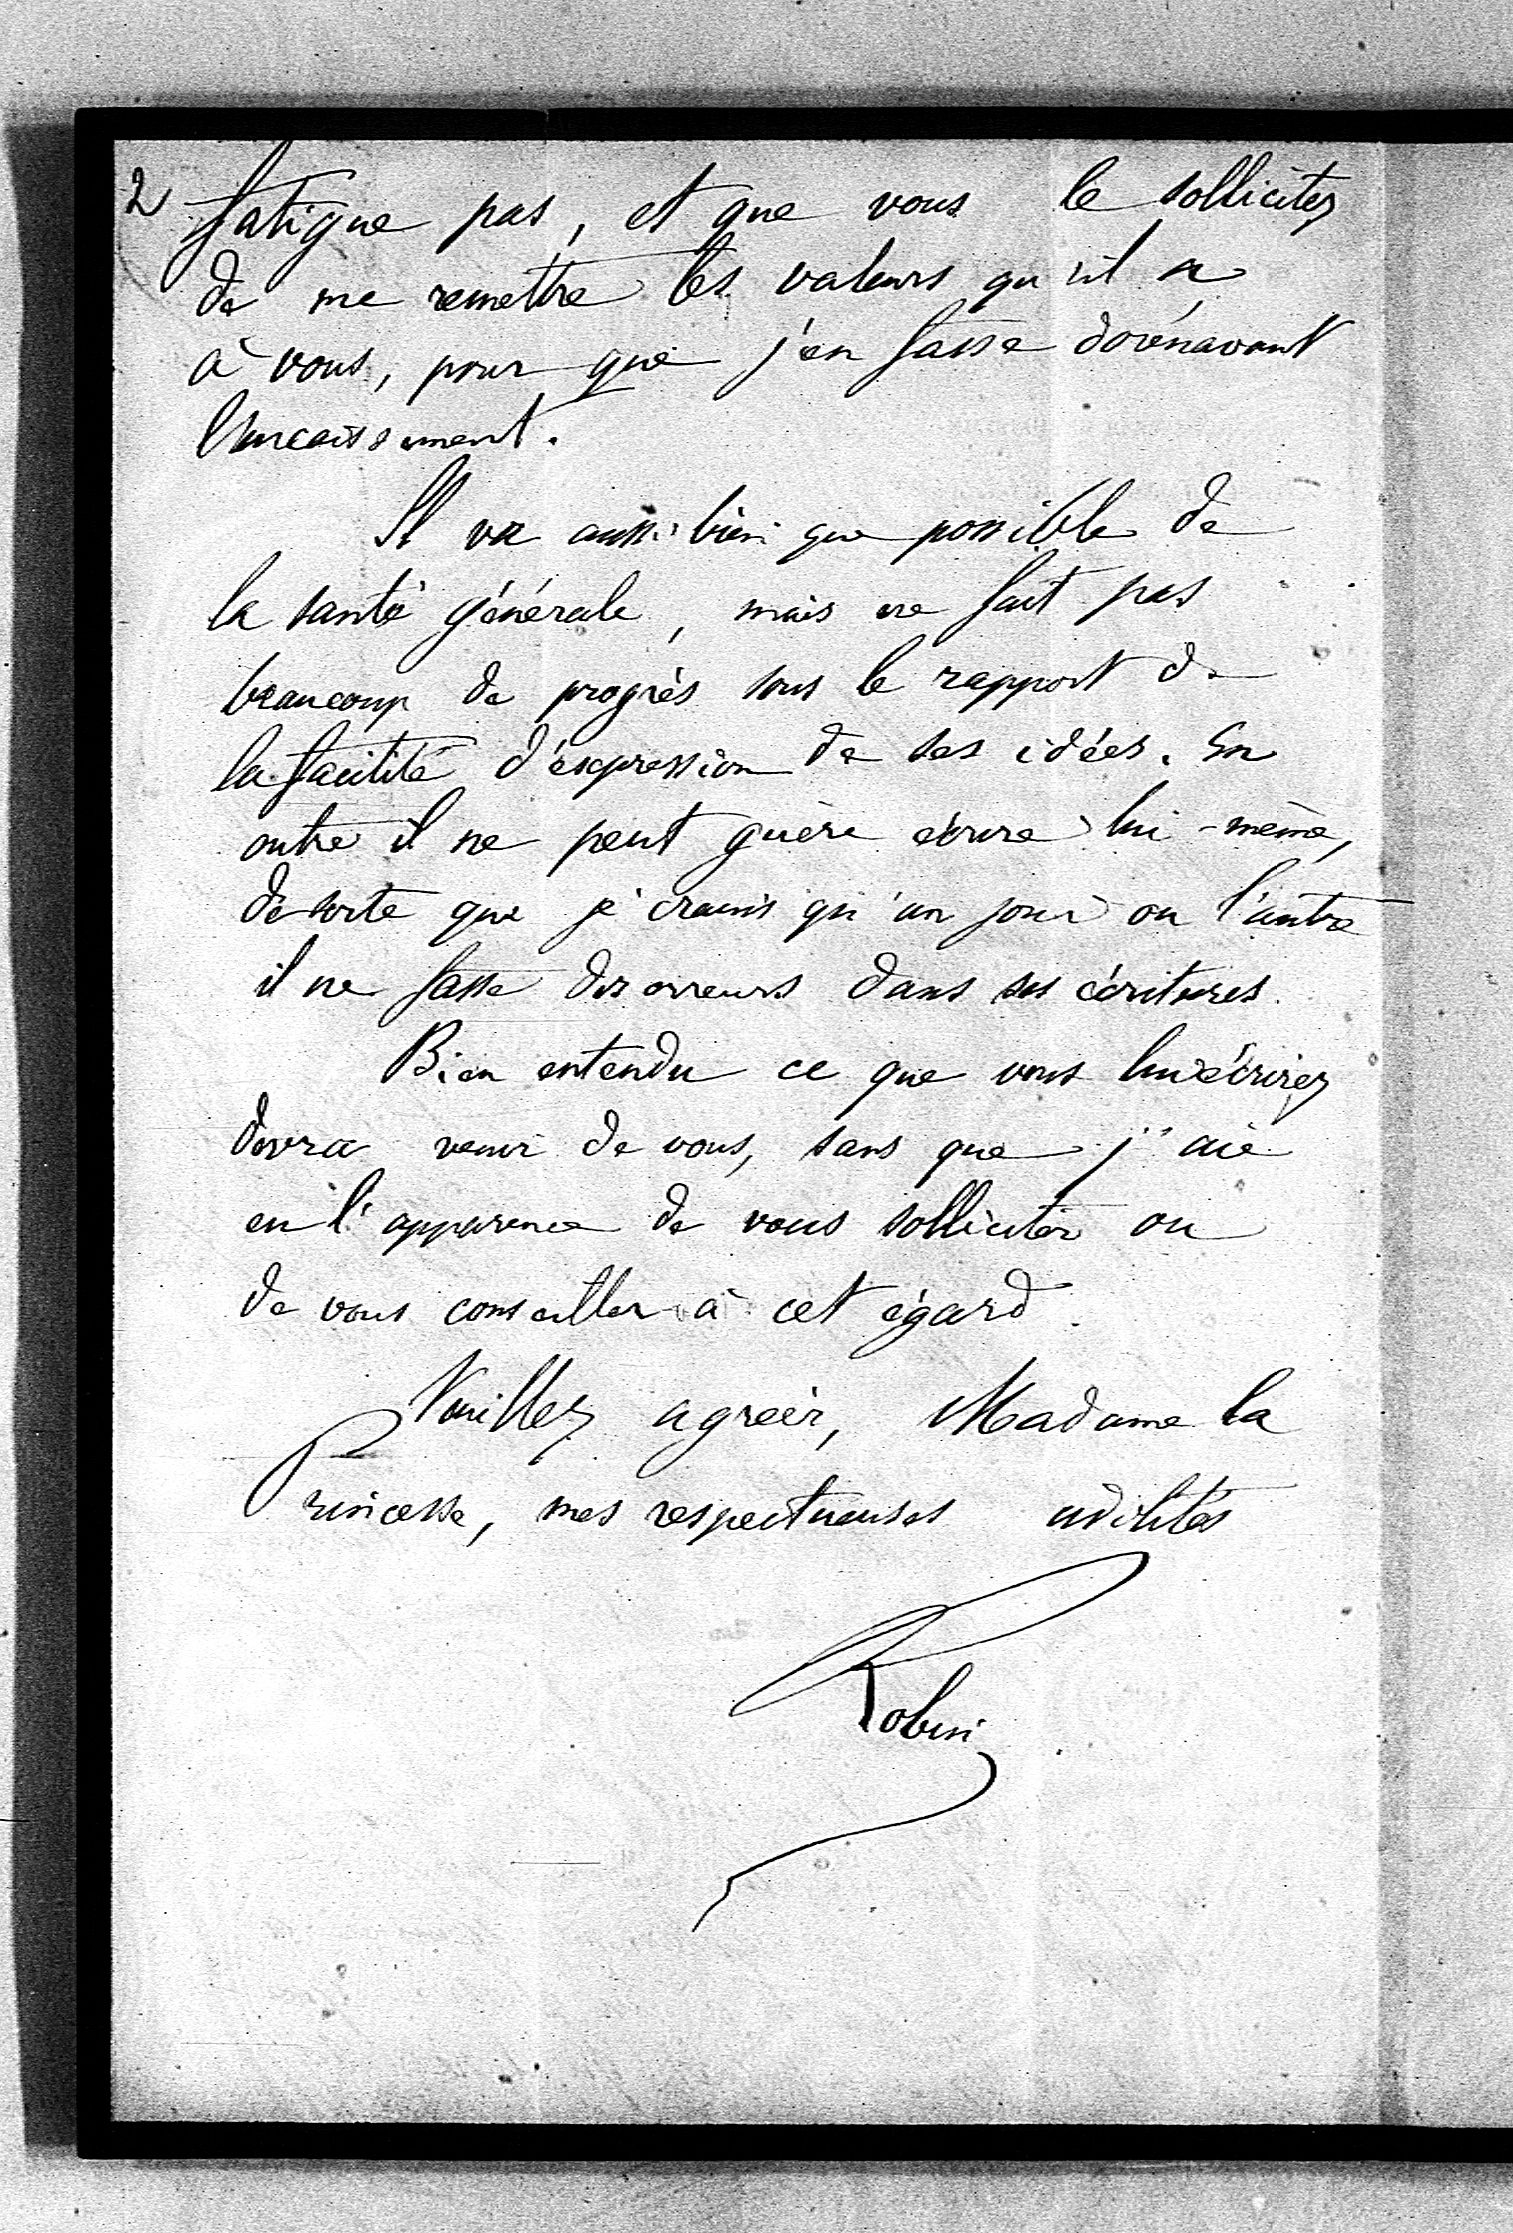 2
fatigue pas, et que vous le sollicitez
de me remettre les valeurs qu'il a
à vous, pour que j'en fasse dorénavant
l'encaissement.
Il va aussi bien que possible de
la santé générale, mais ne fait pas
beaucoup de progrès sous le rapport de
la facilité d'expression de ses idées. En
outre il ne peut guère écrire lui-même,
de sorte que je crains qu'un jour ou l'autre
il ne fasse des erreurs dans ses écritures.
Bien entendu ce que vous lui écrirez
devra venir de vous, sans que j'aie
eu l'apparence de vous solliciter ou
de vous conseiller à cet égard.
Veuillez agréer, Madame la
Princesse, mes respectueuses civilités
Robin